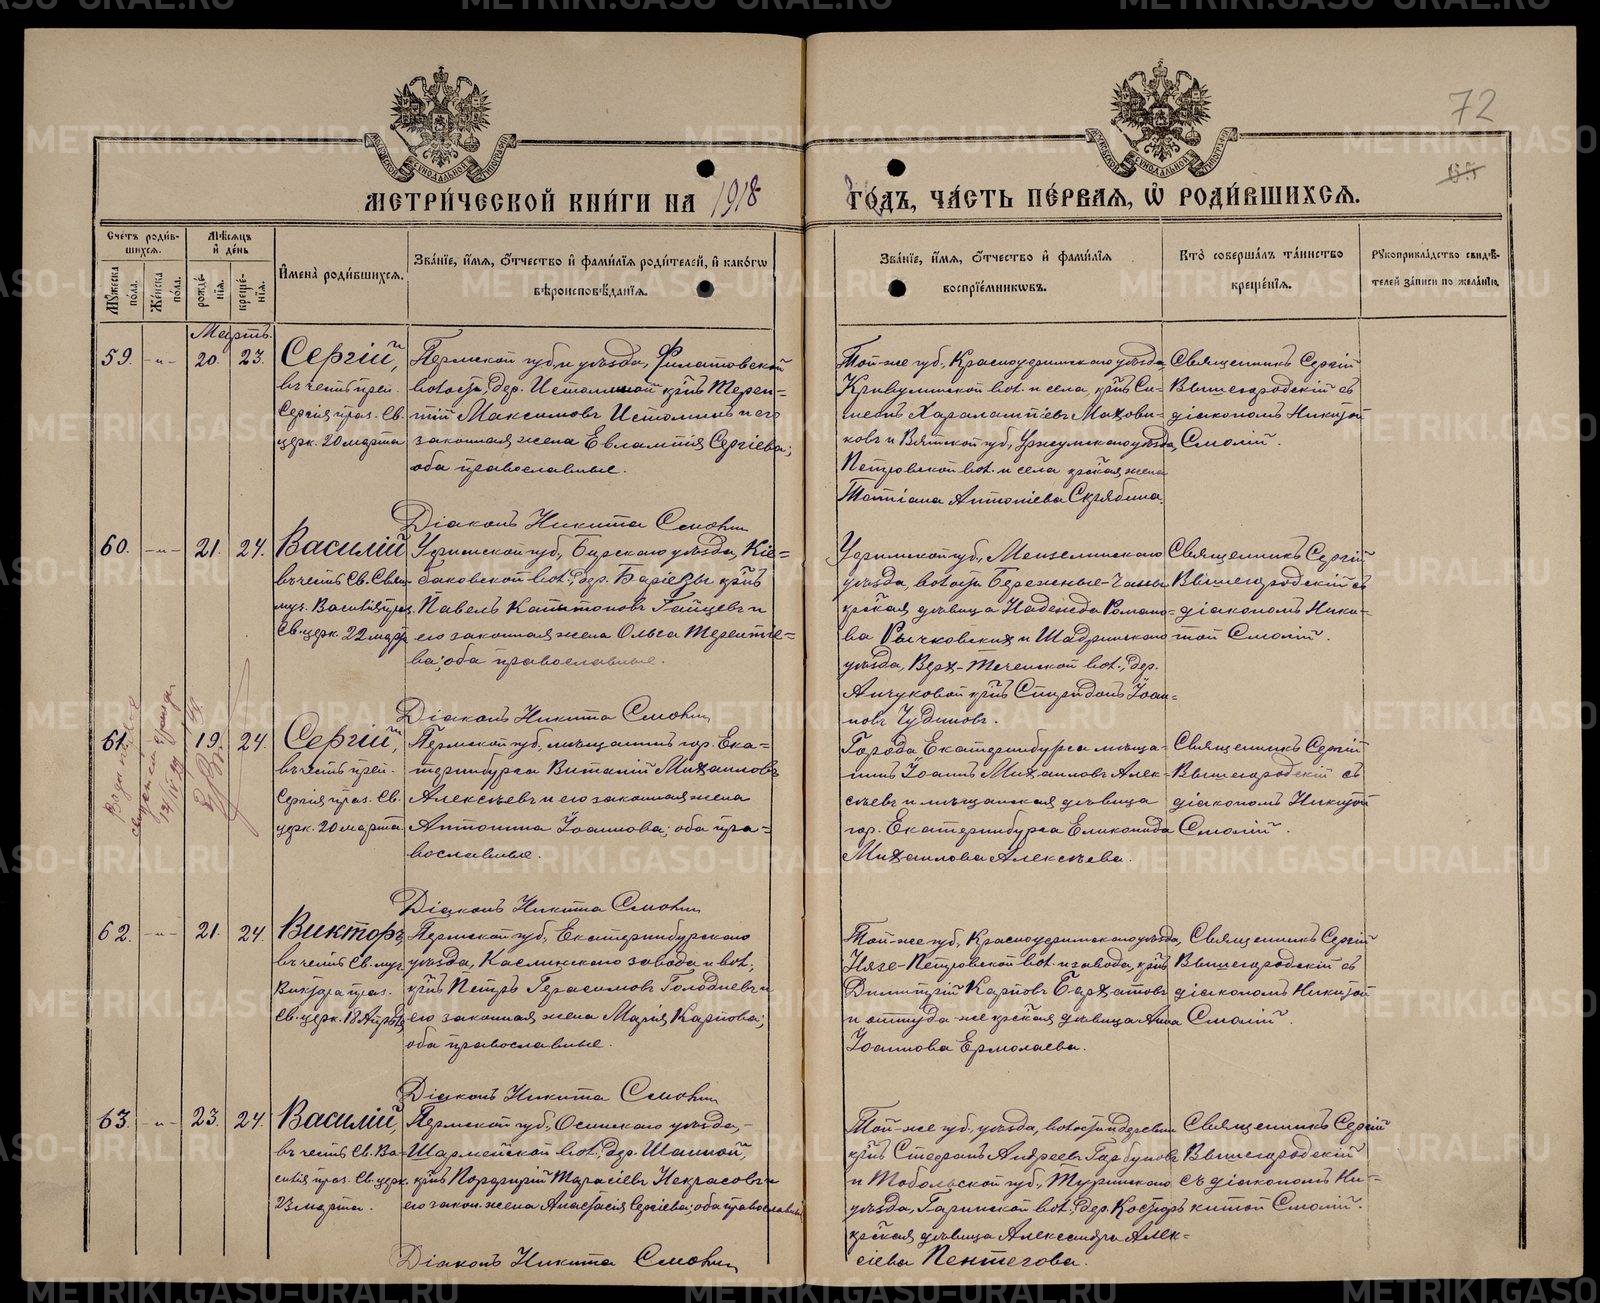 72
65
МЕТРИ́ЧЕСКОЙ КНИ́ГИ НА 1918 ГО́ДЪ, ЧА́СТЬ ПЕ́РВАЯ, Ѡ РОДИ́ВШИХСЯ.
Сче́тъ роди́вшихся.
Му́жеска по́ла.
Же́нска по́ла.
Мѣ́сяцъ и де́нь
рожде́нія.
креще́нія.
Имена̀ роди́вшихся.
Зва́ніе, и́мя, о́тчество и фами́лія роди́телей, и како́гѡ
вѣроисповѣ́данія.
Зва́ніе, и́мя, о́тчество и фами́лія
воспріе́мниковъ.
Кто̀ соверша́лъ та́инство
креще́нія.
Рукоприкла́дство свидѣ́-
телей за́писи по жела́нію.
Мартъ.
59. -"- 20. 23.
Сергій,
въ честь преп.
Сергія праз. Св.
церк. 20 марта
Пермской губ. и уѣзда, Филатовской
волости, дер. Истоминой крнъ Терен-
тій Максимовъ Истоминъ и его
законная жена Евлампія Сергіева;
оба православные.
Той-же губ. Красноуфимскаго уѣзда
Криулинской вол. и села, крнъ Си-
меонъ Харалампіевъ Махови-
ковъ и Вятской губ. Уржумскаго уѣзда,
Петровской вол. и села крская жена
Татіана Антоніева Скрябина.
Священникъ Сергій
Вышегородскій съ
діакономъ Никитой
Смолій.
Діаконъ Никита Смолій
60. -"- 21. 24.
Василій
въ честь Св. Свящ-
муч. Василія праз.
Св. церк. 22 марта
Уфимской губ., Бирскаго уѣзда, Кіе-
баковской вол., дер. Баріевы крнъ
Павелъ Капитоновъ Гайцевъ и
его законная жена Ольга Терентіе-
ва; оба православные.
Уфимской губ., Мензелинскаго
уѣзда, волости Бережные-Чаны
крская дѣвица Надежда Романо-
ва Рычковскихъ и Шадринскаго
уѣзда, Верх-Теченской вол., дер.
Анчуковой крнъ Спиридонъ Іоан-
новъ Чудиновъ.
Священникъ Сергій
Вышегородскій съ
діакономъ Ники-
той Смолій.
Діаконъ Никита Смолій
61. 19. 24.
Сергій,
въ честь преп.
Сергія праз. Св.
церк. 20 марта
Пермской губ., мѣщанинъ гор. Ека-
теринбурга Виталій Михаиловъ
Алексѣевъ и его законная жена
Антонина Іоаннова; оба пра-
вославные.
Города Екатеринбурга мѣща-
нинъ Іоаннъ Михаиловъ Алек-
сѣевъ и мѣщанская дѣвица
гор. Екатеринбурга Еликонида
Михаилова Алексѣева.
Священникъ Сергій
Вышегородскій съ
діакономъ Никитой
Смолій.
Діаконъ Никита Смолій
62. -"- 21. 24.
Викторъ,
въ честь Св. муч.
Виктора праз.
Св. церк. 18 Апрѣля
Пермской губ., Екатеринбургскаго
уѣзда, Каслинскаго завода и вол.,
крнъ Петръ Герасимовъ Голодневъ и
его законная жена Марія Карпова;
оба православные.
Той-же губ., Красноуфимскаго уѣзда,
Нязе-Петровской вол. и завода, крнъ
Димитрій Карповъ Бархатовъ
и оттуда-же крская дѣвица Анна
Іоаннова Ермолаева.
Священникъ Сергій
Вышегородскій съ
діакономъ Никитой
Смолій.
Діаконъ Никита Смолій
63. -"- 23. 24.
Василій,
въ честь Св. Ва-
силія праз. Св. церк.
23 марта.
Пермской губ., Осинскаго уѣзда,
Шермейской вол., дер. Шаиной,
крнъ Порфирій Тарасіевъ Некрасовъ и
его закон. жена Анастасія Сергіева; оба православные
Той-же губ. уѣзда, волости и деревни
крнъ Стефанъ Андреевъ Горбуновъ
и Тобольской губ., Туринскаго
уѣзда, Гаринской вол., дер.
крская дѣвица Александра Алек-
сіева Пентегова.
Священникъ Сергій
Вышегородскій
съ діакономъ Ни-
китой Смолій.
Діаконъ Никита Смолій
METRIKI.GASO-URAL.RU